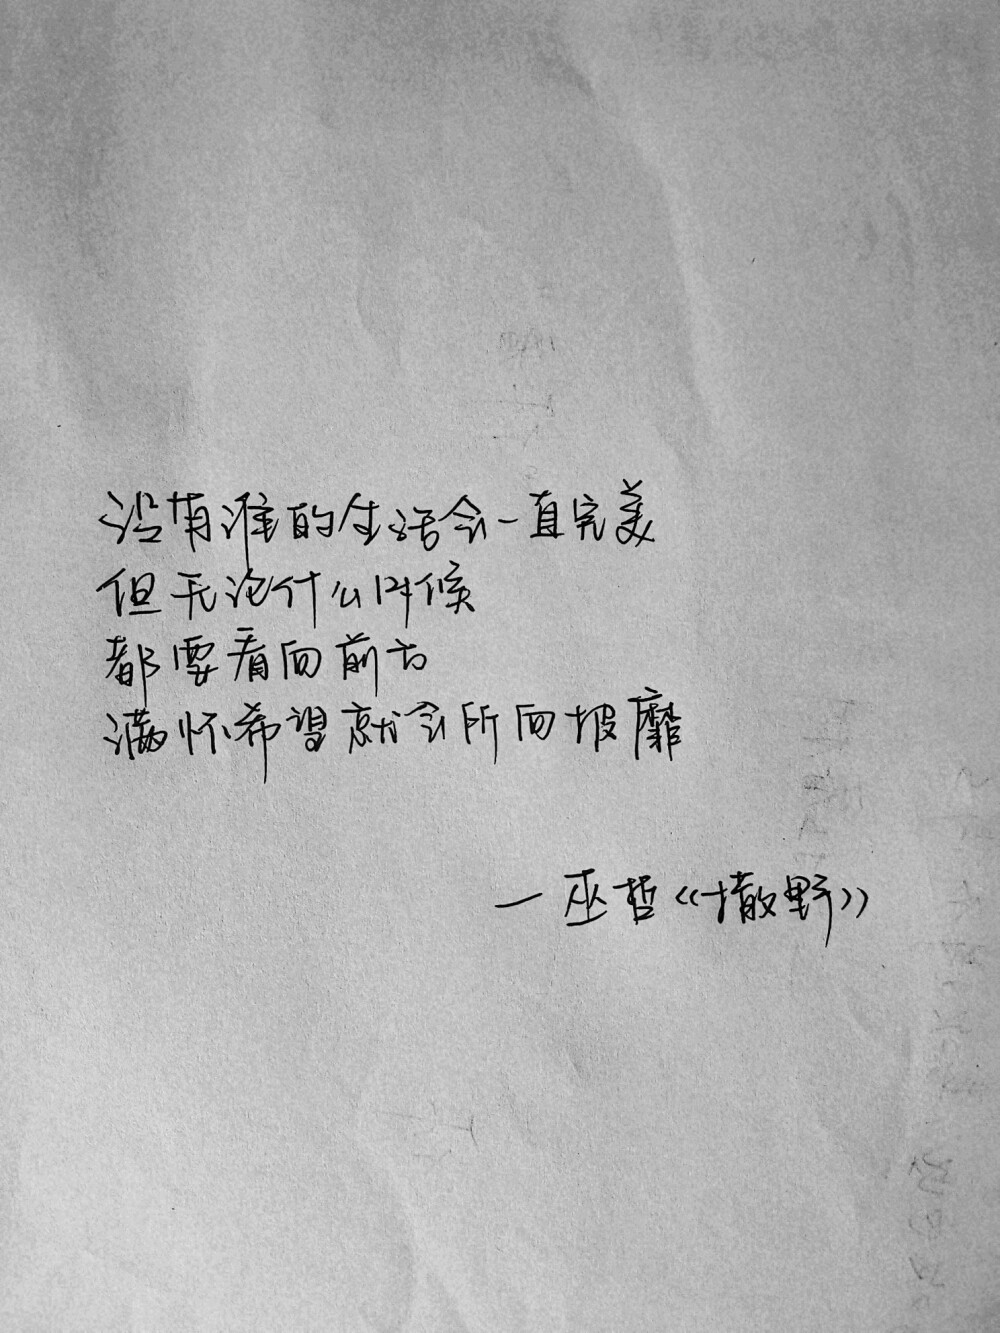 没有谁的生活会一直完美
但无论什么时候
都要看向前方
满怀希望就会所向披靡
一巫哲《撒野》